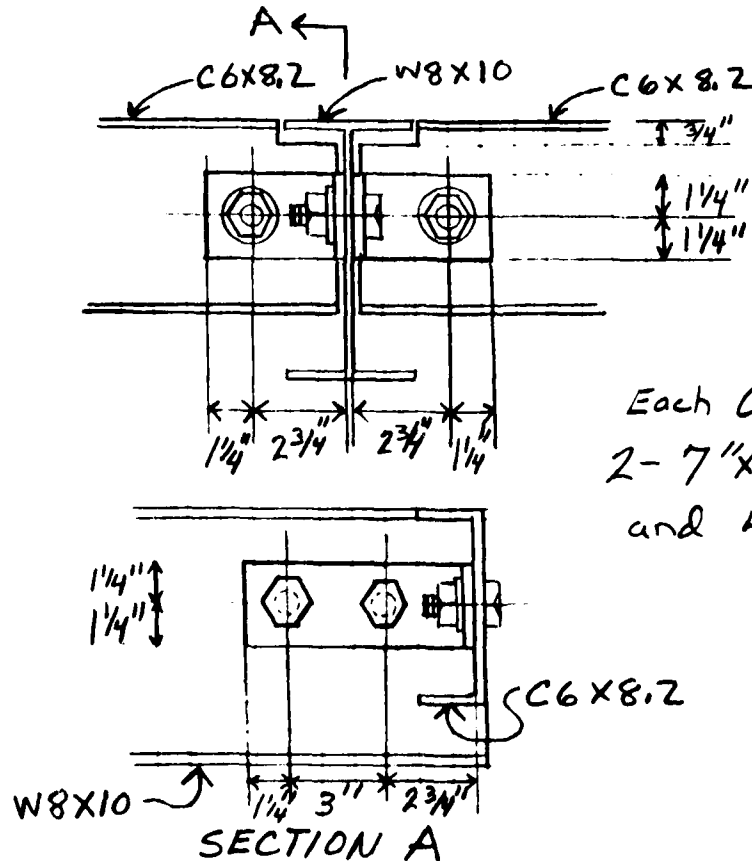 A
C6X8.2
W8X10
C6X8.2
3/4"
1 1/4"
1 1/4"
1 1/4" 2 3/4" 2 3/4" 1 1/4"
Each
2- 7"X
and
1 1/4"
1 1/4"
C6X8.2
W8X10
1 1/4" 3" 2 3/4"
SECTION A